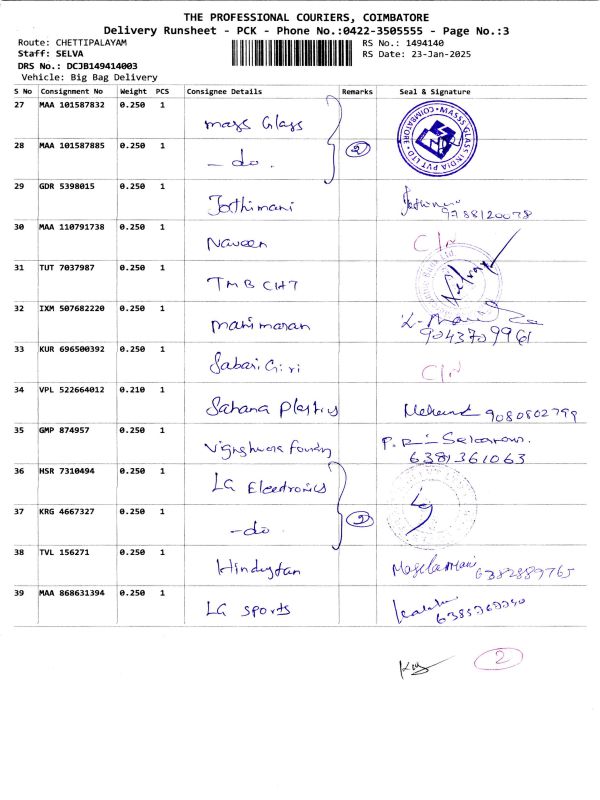 THE PROFESSIONAL COURIERS, COIMBATORE
Delivery Runsheet - PCK - Phone No.:0422-3505555 - Page No.:3
Route: CHETTIPALAYAM
RS No.: 1494140
Staff: SELVA
RS Date: 23-Jan-2025
DRS No.: DCJB149414003
Vehicle: Big Bag Delivery
S No Consignment No Weight PCS Consignee Details Remarks Seal & Signature
27 MAA 101587832 0.250 1 Mass Glass
MASSS GLASS INDIA PVT LTD • COIMBATORE •
28 MAA 101587885 0.250 1 - do. 2
29 GDR 5398015 0.250 1 Jothimani
9788120078
30 MAA 110791738 0.250 1 Naveen C/N
31 TUT 7037987 0.250 1 TMB CHT
32 IXM 507682220 0.250 1 manimaran
9043709961
33 KUR 696500392 0.250 1 Sabari Giri C/N
34 VPL 522664012 0.210 1 Sahana Plastics 9080802799
35 GMP 874957 0.250 1 Vignshwara foundry
6381361063
36 HSR 7310494 0.250 1 LG Electronics
37 KRG 4667327 0.250 1 - do. 2
38 TVL 156271 0.250 1 Hindustan 6382889765
39 MAA 868631394 0.250 1 LG sports
2